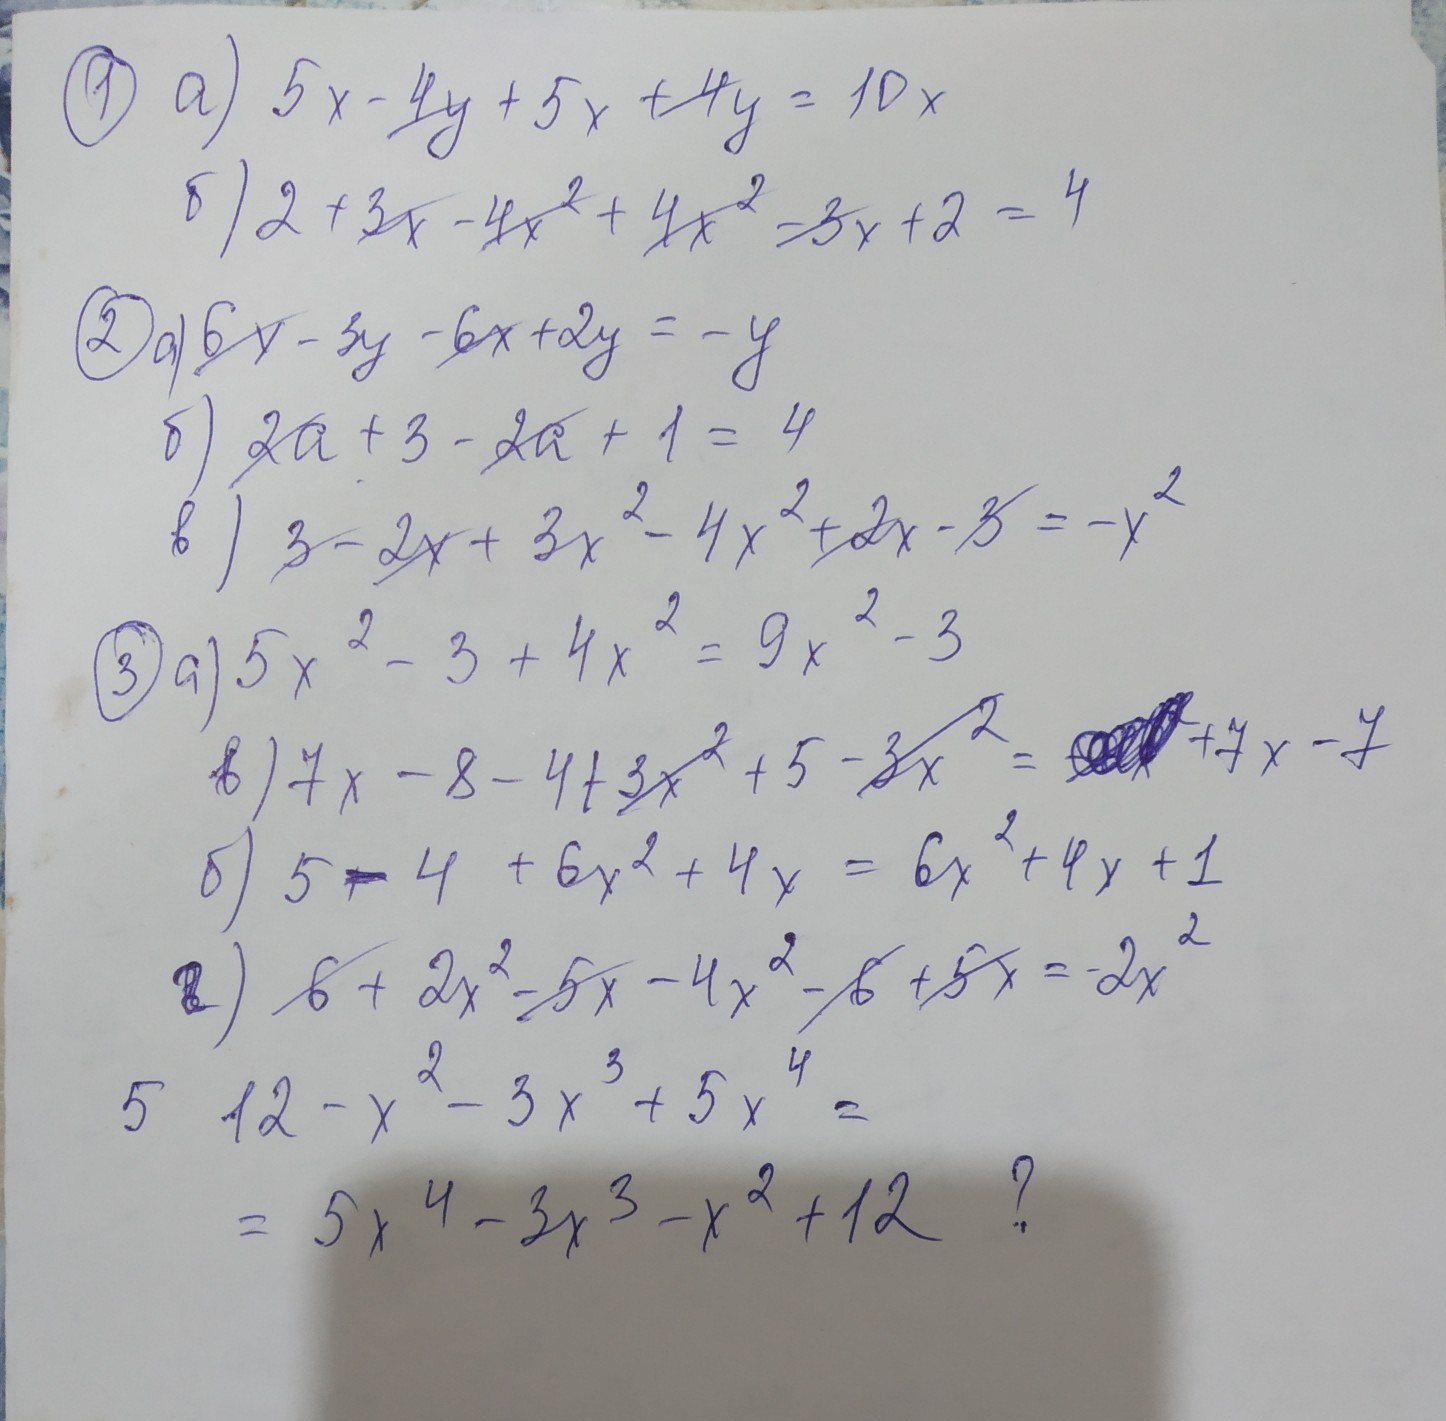 ① а) 5x - 4y + 5x + 4y = 10x
б) 2 + 3x - 4x² + 4x² - 3x + 2 = 4
② а) 6x - 3y - 6x + 2y = - y
б) 2a + 3 - 2a + 1 = 4
в) 3 - 2x + 3x² - 4x² + 2x - 3 = - x²
③ а) 5x² - 3 + 4x² = 9x² - 3
в) 7x - 8 - 4 + 3x² + 5 - 3x² = +7x - 7
б) 5 - 4 + 6x² + 4x = 6x² + 4x + 1
г) 6 + 2x² - 5x - 4x² - 6 + 5x = -2x²
5 12 - x² - 3x³ + 5x⁴ =
= 5x⁴ - 3x³ - x² + 12 ?